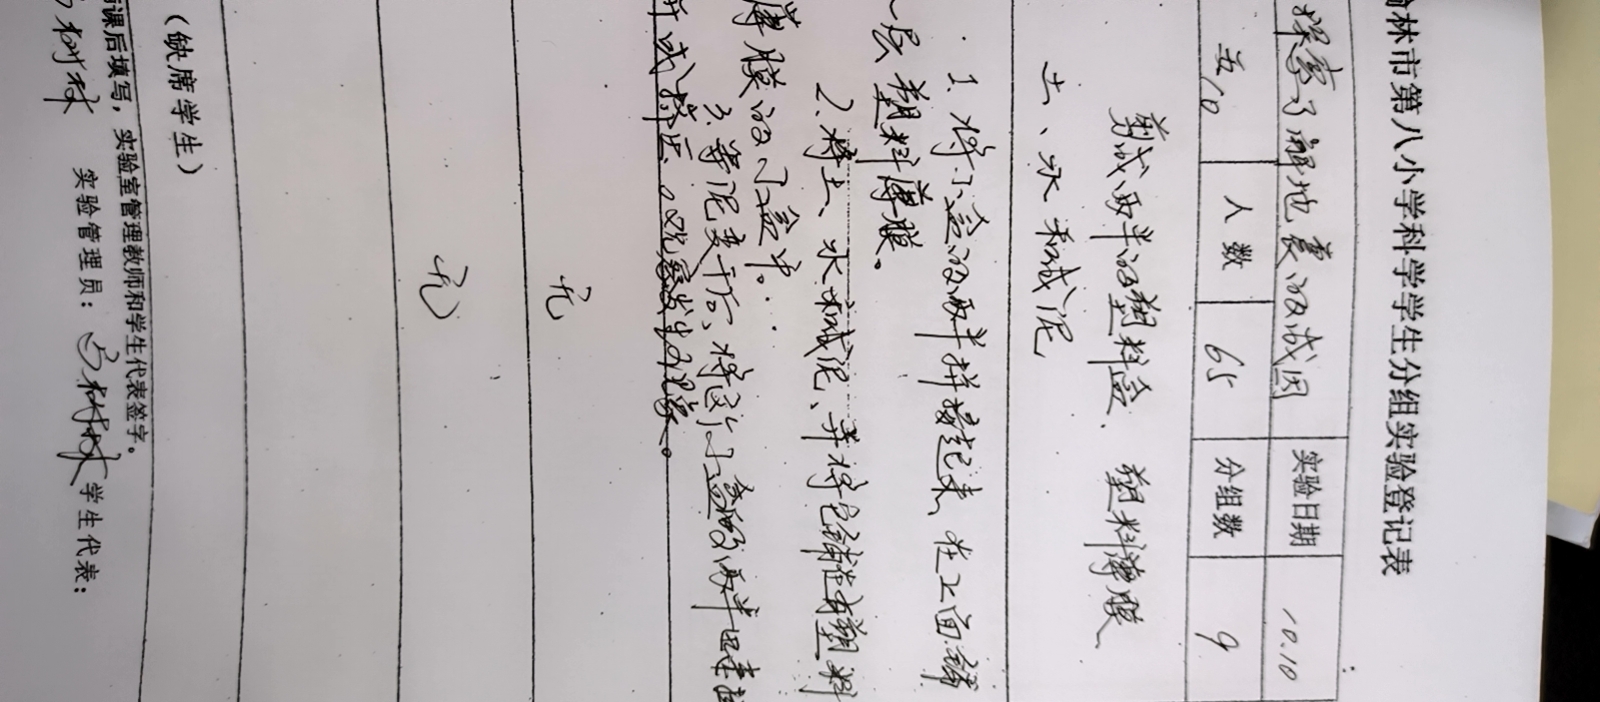 榆林市第八小学科学学生分组实验登记表
探索了解地表的成因 实验日期 10.10
五10 人数 65 分组数 9
剪成两半的塑料盆、塑料薄膜
土、水和成泥
1. 将小盆的两半拼接起来,在上面铺
一层塑料薄膜。
2. 将土、水和成泥,并将它铺在有塑料
薄膜的小盆中。
3. 等泥变干后,将这个小盆的两半
挤压,观察发生的现象。
无
无
(缺席学生)
课后填写,实验室管理教师和学生代表签字。
实验管理员: 学生代表: